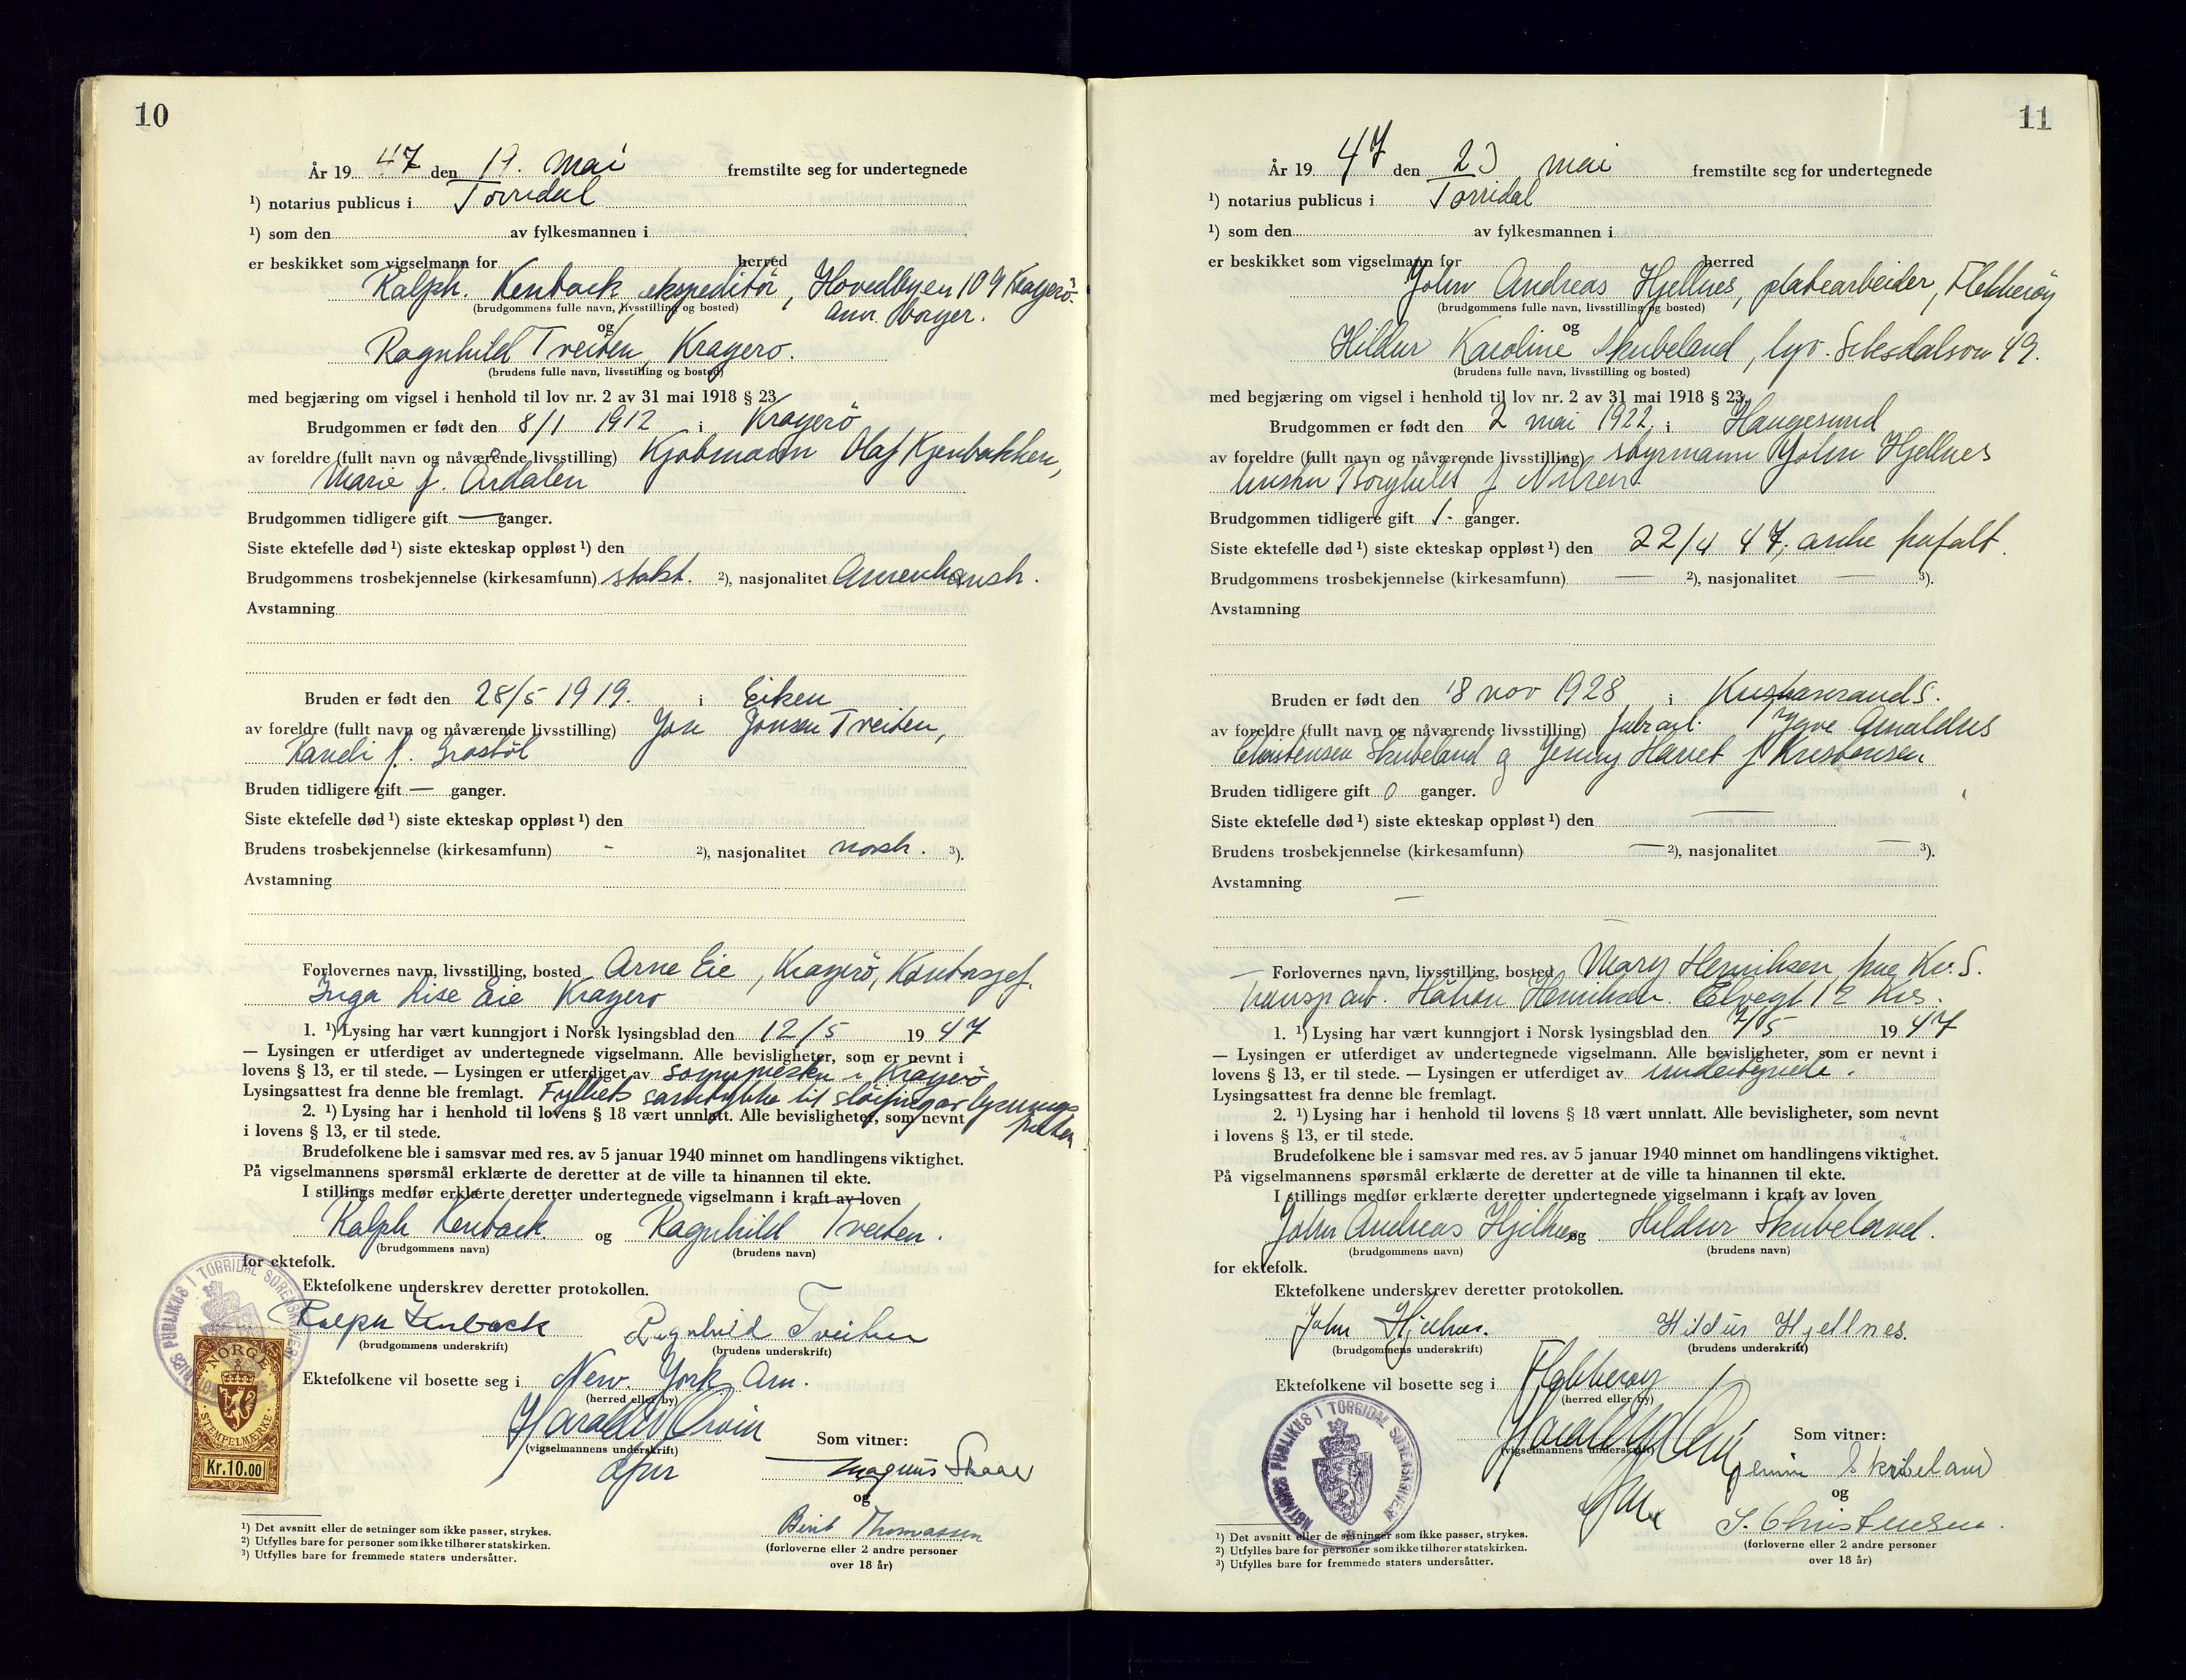 10
År 19 47 den 19. mai fremstilte seg for undertegnede
¹) notarius publicus i Torridal
¹) som den av fylkesmannen i
er beskikket som vigselmann for herred
Ralph. Kenback ekspeditör, Hovedbyen 109 Kragerö.
(brudgommens fulle navn, livsstilling og bosted)
og
Ragnhild Tveiten, Kragerö.
(brudens fulle navn, livsstilling og bosted)
med begjæring om vigsel i henhold til lov nr. 2 av 31 mai 1918 § 23.
Brudgommen er født den 8/1 1912 i Kragerö
av foreldre (fullt navn og nåværende livsstilling) Kjøbmann Olaf Kjenbakken,
Marie f. Årdalen
Brudgommen tidligere gift — ganger.
Siste ektefelle død ¹) siste ekteskap oppløst ¹) den
Brudgommens trosbekjennelse (kirkesamfunn) ²), nasjonalitet Amerikansk.
Avstamning
Bruden er født den 28/5 1919. i Eiken
av foreldre (fullt navn og nåværende livsstilling) Jon Jonsen Tveiten,
f.
Bruden tidligere gift — ganger.
Siste ektefelle død ¹) siste ekteskap oppløst ¹) den
Brudens trosbekjennelse (kirkesamfunn) - ²), nasjonalitet norsk. ³).
Avstamning
Forlovernes navn, livsstilling, bosted Arne Eie, Kragerö, Kontorsjef.
Inga Lise Eie Kragerö
1. ¹) Lysing har vært kunngjort i Norsk lysingsblad den 12/5 19 47
— Lysingen er utferdiget av undertegnede vigselmann. Alle bevisligheter, som er nevnt i
lovens § 13, er til stede. — Lysingen er utferdiget av sognepresten i Kragerö
Lysingsattest fra denne ble fremlagt. Fylkets samtykke til sløifing av lysings
2. ¹) Lysing har i henhold til lovens § 18 vært unnlatt. Alle bevisligheter, som nevnt
i lovens § 13, er til stede.
Brudefolkene ble i samsvar med res. av 5 januar 1940 minnet om handlingens viktighet.
På vigselmannens spørsmål erklærte de deretter at de ville ta hinannen til ekte.
I stillings medfør erklærte deretter undertegnede vigselmann i kraft av loven
Ralph Kenback. og Ragnhild Tveiten.
(brudgommens navn) (brudens navn)
for ektefolk.
Ektefolkene underskrev deretter protokollen.
Ralph Kenback Ragnhild Tveiten
(brudgommens underskrift) (brudens underskrift)
Ektefolkene vil bosette seg i New. York Am.
(herred eller by)
(vigselmannens underskrift)
Som vitner:
Magnus Skaar
og
Berit Thomassen
(forloverne eller 2 andre personer
over 18 år)
NOTARIUS PUBLIKUS I TORRIDAL SORENSKRIVERI
NORGE
STEMPELMERKE
Kr.10.00
¹) Det avsnitt eller de setninger som ikke passer, strykes.
²) Utfylles bare for personer som ikke tilhører statskirken.
³) Utfylles bare for fremmede staters undersåtter.
11
År 19 47 den 23 mai fremstilte seg for undertegnede
¹) notarius publicus i Torridal
¹) som den av fylkesmannen i
er beskikket som vigselmann for herred
John Andreas Hjellnes, platearbeider, Flekkerøy
(brudgommens fulle navn, livsstilling og bosted)
og
Hildur Karoline Skubeland, 49.
(brudens fulle navn, livsstilling og bosted)
med begjæring om vigsel i henhold til lov nr. 2 av 31 mai 1918 § 23.
Brudgommen er født den 2 mai 1922. i Haugesund
av foreldre (fullt navn og nåværende livsstilling) styrmann John Hjellnes
hustru Borghild f Nilsen.
Brudgommen tidligere gift 1. ganger.
Siste ektefelle død ¹) siste ekteskap oppløst ¹) den 22/4 47,
Brudgommens trosbekjennelse (kirkesamfunn) — ²), nasjonalitet — ³).
Avstamning
Bruden er født den 18 nov 1928 i Kristiansand S.
av foreldre (fullt navn og nåværende livsstilling) Arnaldus
Christensen Skubeland og Jenny Harriet f Kristensen
Bruden tidligere gift 0 ganger.
Siste ektefelle død ¹) siste ekteskap oppløst ¹) den —
Brudens trosbekjennelse (kirkesamfunn) — ²), nasjonalitet — ³).
Avstamning
Forlovernes navn, livsstilling, bosted Mary Henriksen, frue Kr. S.
Transp arb. Håkon Henriksen. Elvegt 12 Krs.
1. ¹) Lysing har vært kunngjort i Norsk lysingsblad den 7/5 19 47
— Lysingen er utferdiget av undertegnede vigselmann. Alle bevisligheter, som er nevnt i
lovens § 13, er til stede. — Lysingen er utferdiget av undertegnede.
Lysingsattest fra denne ble fremlagt.
2. ¹) Lysing har i henhold til lovens § 18 vært unnlatt. Alle bevisligheter, som nevnt
i lovens § 13, er til stede.
Brudefolkene ble i samsvar med res. av 5 januar 1940 minnet om handlingens viktighet.
På vigselmannens spørsmål erklærte de deretter at de ville ta hinannen til ekte.
I stillings medfør erklærte deretter undertegnede vigselmann i kraft av loven
John Andreas Hjellnes og Hildur Skubeland.
(brudgommens navn) (brudens navn)
for ektefolk.
Ektefolkene underskrev deretter protokollen.
John Hjellnes. Hildur Hjellnes.
(brudgommens underskrift) (brudens underskrift)
Ektefolkene vil bosette seg i Flekkerøy
(herred eller by)
(vigselmannens underskrift)
Som vitner:
Skubeland
og
S. Christensen
(forloverne eller 2 andre personer
over 18 år)
NOTARIUS PUBLIKUS I TORRIDAL SORENSKRIVERI
¹) Det avsnitt eller de setninger som ikke passer, strykes.
²) Utfylles bare for personer som ikke tilhører statskirken.
³) Utfylles bare for fremmede staters undersåtter.